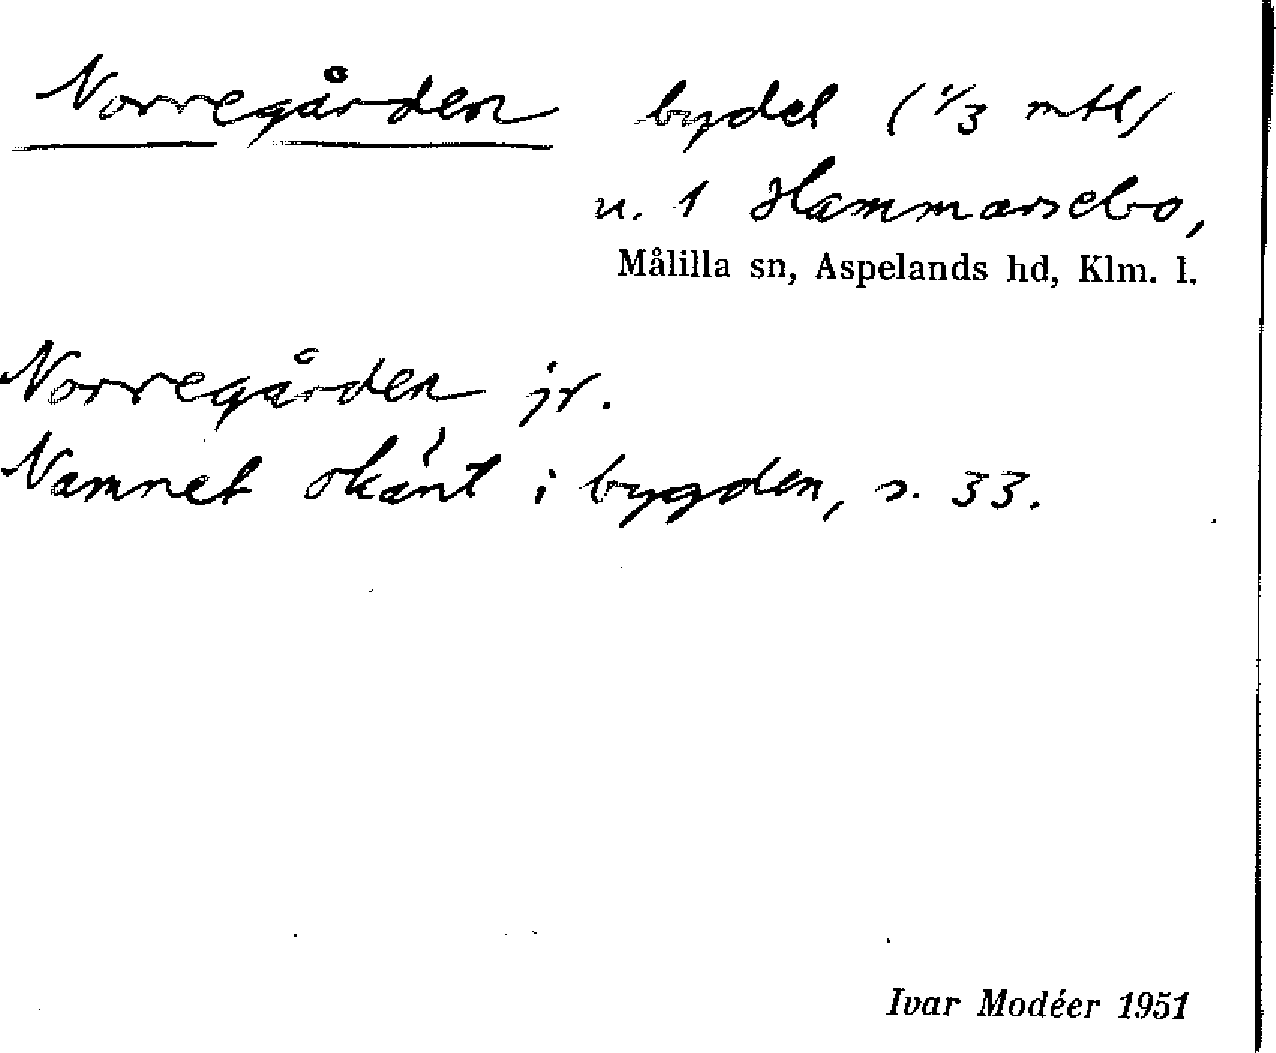 Norregården bydel (1/3 mtl)
u. 1 Hammarsebo,
Målilla sn, Aspelands hd, Klm. l.
Norregården jr.
Namnet okánt i bygden, s. 33.
Ivar Modéer 1951